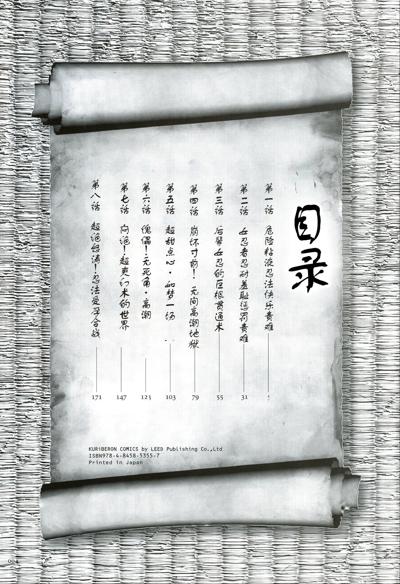 目录
第一话 危险粘液忍法快乐责难 5
第二话 女忍者忍耐羞耻惩罚责难 31
第三话 后臀女忍的巨根贯通术 55
第四话 崩坏寸前！无间高潮地狱 79
第五话 超甜点心·如梦一场 103
第六话 傀儡！无死角·高潮 123
第七话 向绝！超爽幻术的世界 147
第八话 超绝怒涛！忍法爱淫合战 171
KURiBERON COMICS by LEED Publishing Co.,Ltd
ISBN978-4-8458-5355-7
Printed in Japan